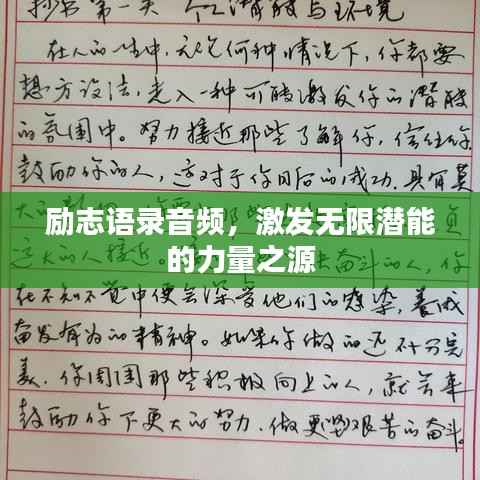 个人潜能与环境
在人的一生中，无论何种情况下，你都要
想方设法，走入一种可能激发你的潜能
的氛围中。努力接近那些了解你，信任你，
鼓励你的人，这对于你日后的成功，具有莫
大的
励志语录音频，激发无限潜能
的力量之源
奋斗的人，你
在不知不觉中便会深受他们的感染，养成
奋发有为的精神。如果你做的还不十分完
美，你周围那些积极向上的人，就会来
鼓励你下更大的努力，做更艰苦的奋斗。